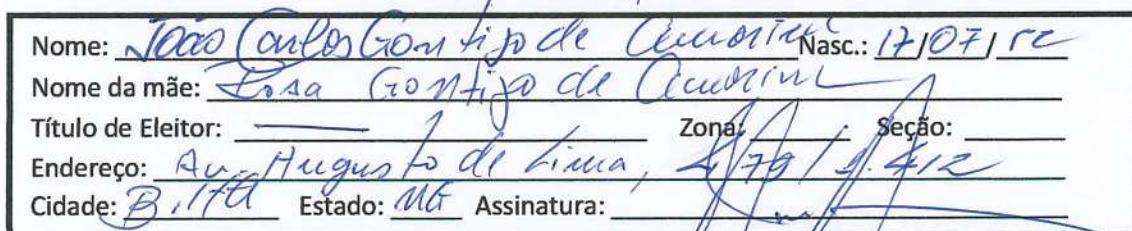 Nome: João Carlos Gontijo de Amorim Nasc.: 17/07/
Nome da mãe: Rosa Gontijo de Amorim
Título de Eleitor: — Zona: Seção:
Endereço: Av. Augusto de Lima,
Cidade: B. Hte Estado: MG Assinatura: